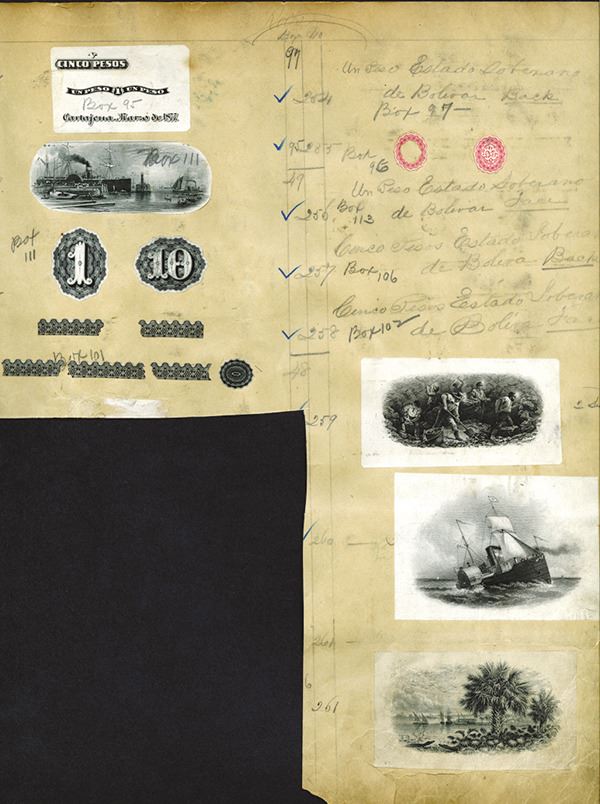 CINCO PESOS
UN PESO 1 UN PESO
Box 95
Cartajena, Marzo de 187
Box 111
Box
111
1
10
Box 101
Box No
97
254
Un Peso Estado Soberano
de Bolivar Back
Box 97
95 255
Box
96
49
256
Un Peso Estado Soberano
Box
113
de Bolivar Face
257
Cinco Pesos Estado Soberano
Box
106
de Boliva Back
258
Cinco Pesos Estado Soberano
Box 102
de Boliva Face
48
259
260
261
261